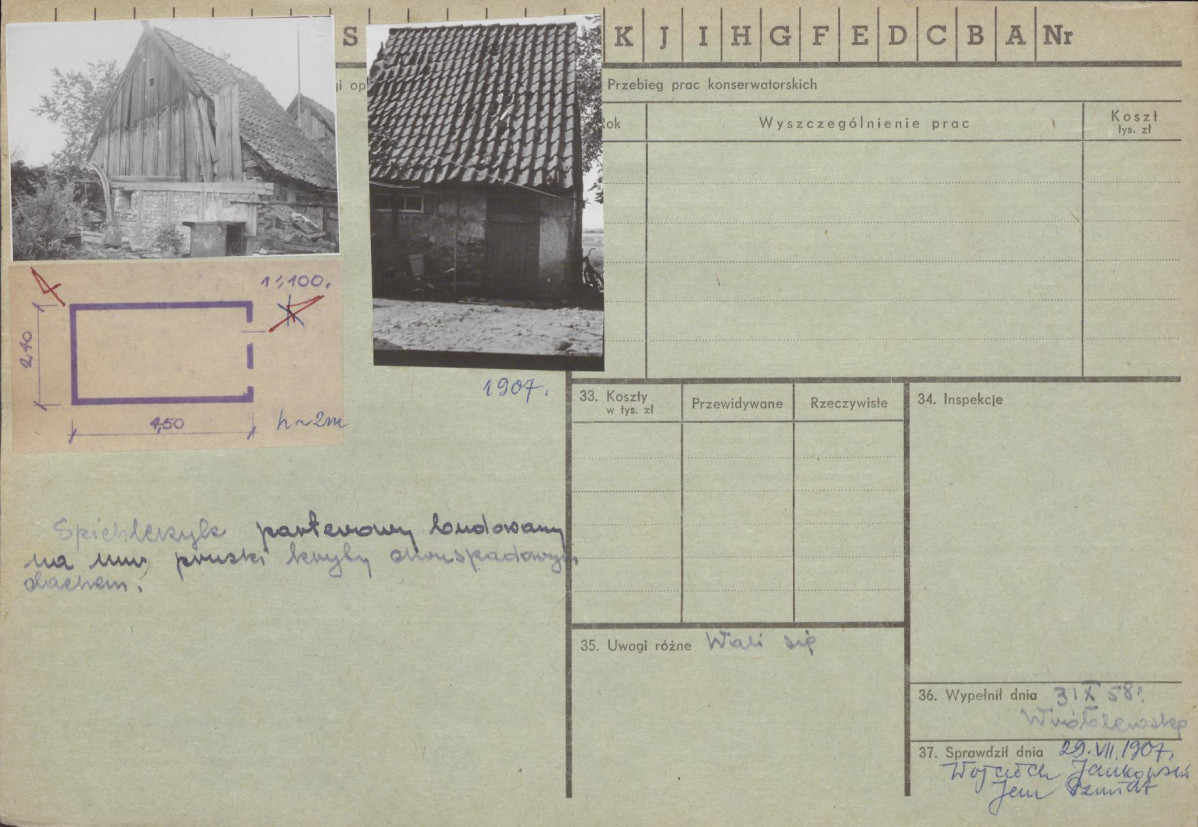 S K J I H G F E D C B A Nr
Przebieg prac konserwatorskich
Wyszczególnienie prac
Koszt
tys. zł
1:100.
2,10
4,50
h~2m
1907.
33. Koszty
w tys. zł
Przewidywane
Rzeczywiste
34. Inspekcje
parterowy budowany
na mur pruski kryty dwuspadowym
dachem.
35. Uwagi różne Wali się
36. Wypełnił dnia 3 IX 58r.
37. Sprawdził dnia 29.VII.1907.
Jankowski